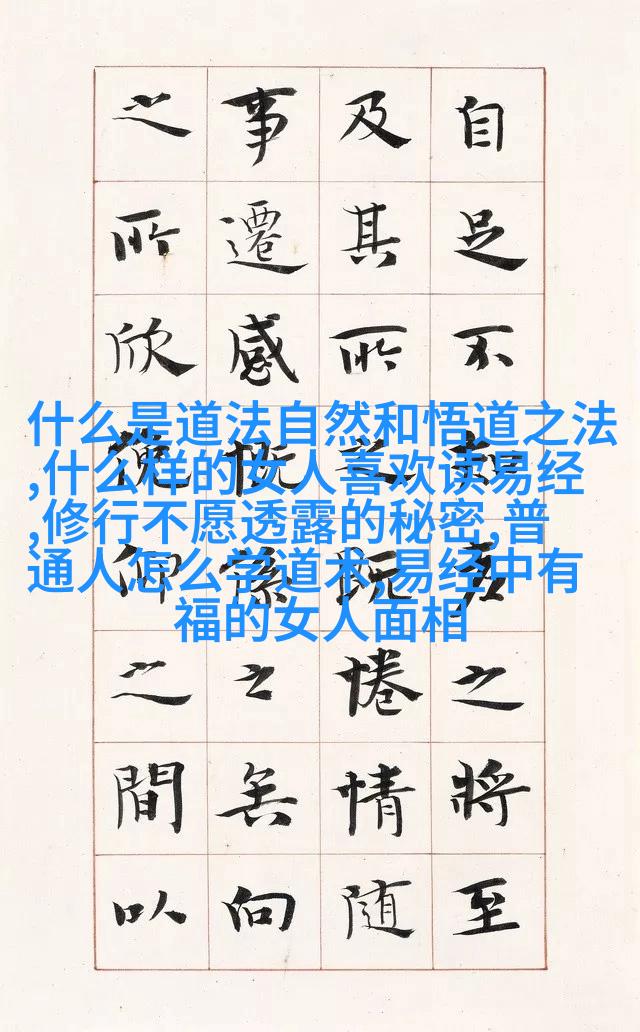 自足不知老之將至
及其所之既惓情隨
事遷感慨係之矣向
之所欣俛仰之間以
什么是道法自然和悟道之法
,什么样的女人喜欢读易经
,修行不愿透露的秘密,普
通人怎么学道术,易经中有
福的女人面相